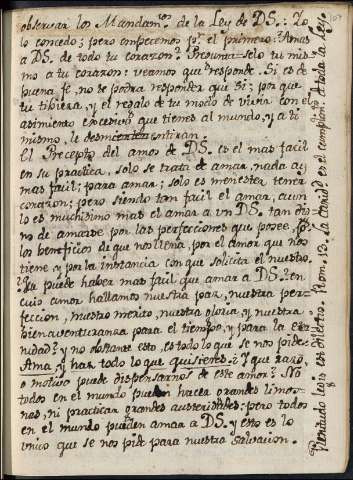 observar los Mandam.tos de la Ley de DS.: Yo
lo concedo; pero empecemos p.r el primero: Amas
a DS. de todo tu corazon? Preguntaselo tu mis-
mo a tu corazon: veamos que responde. Si es de
buena fe, no se podra responder que si; por que
tu tibiera, y el regalo de tu modo de vivir con el
asimiento excesivo que tienes al mundo, y a ti
mismo, le desmentiran.
El Precepto del amor de DS. es el mas facil
en su practica, solo se trata de amar, nada ay
mas facil; para amar; solo es menester tener
corazon; pero siendo tan facil el amar, aun
lo es muchisimo mas el amar a un DS. tan dig-
no de amarse, por las perfecciones que posee, p.r
los beneficios de que nos llena, por el amor que nos
tiene y por la instancia con que solicita el nuestro.
Que puede haber mas facil que amar a DS? en
cuio amor hallamos nuestra paz, nuestra per-
feccion, nuestro merito, nuestra gloria, y nuestra
bienaventuranza para el tiempo, y para la eter-
nidad? y no obstante esto, es todo lo que se nos pide:
Ama, y haz todo lo que quisieres: Y que razon
o motivo puede dispensarnos de este amor? No
todos en el mundo pueden hacer grandes limos-
nas, ni practicar grandes austeridades: pero todos
en el mundo pueden amar a DS. y esto es lo
unico que se nos pide para nuestra salvacion.
Plenitudo legis est dilectio. Rom. 13. La Carid.d es el cumplim.to de toda la Ley.